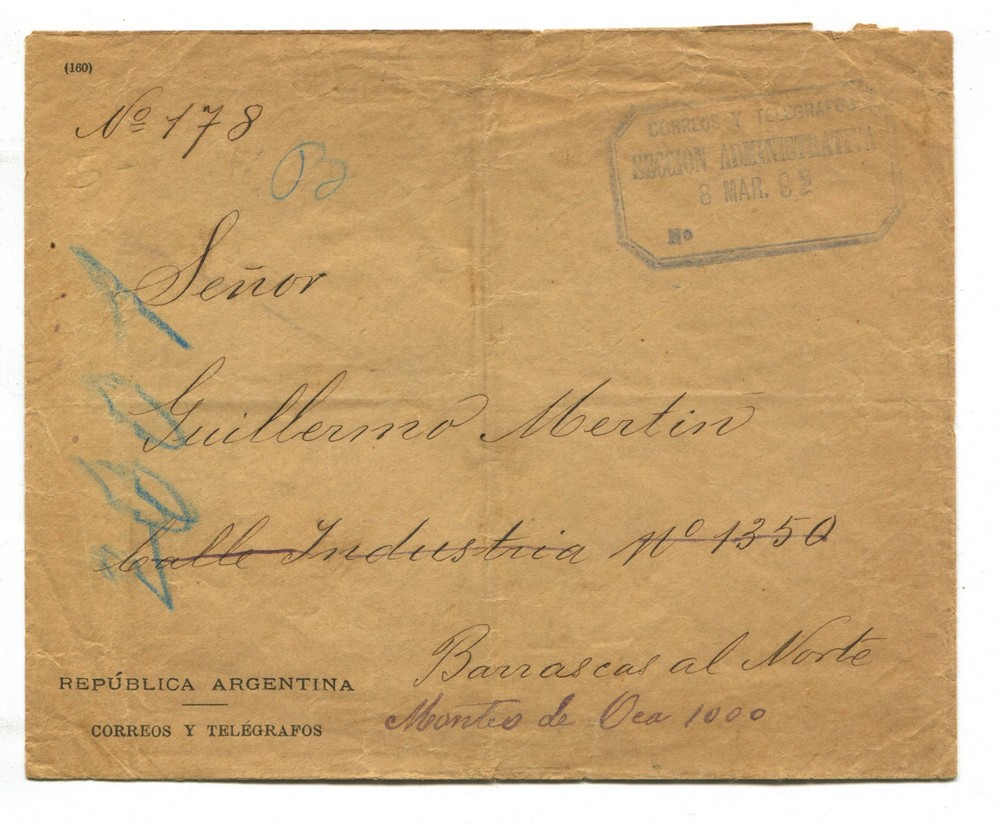 (160)
Nº 178
CORREOS Y TELEGRAFOS
SECCION ADMINISTRATIVA
8 MAR. 92
No
Señor
Guillermo Mertin
Calle Industria Nº 1350
Barrascas al Norte
Montes de Oca 1000
REPÚBLICA ARGENTINA
CORREOS Y TELÉGRAFOS